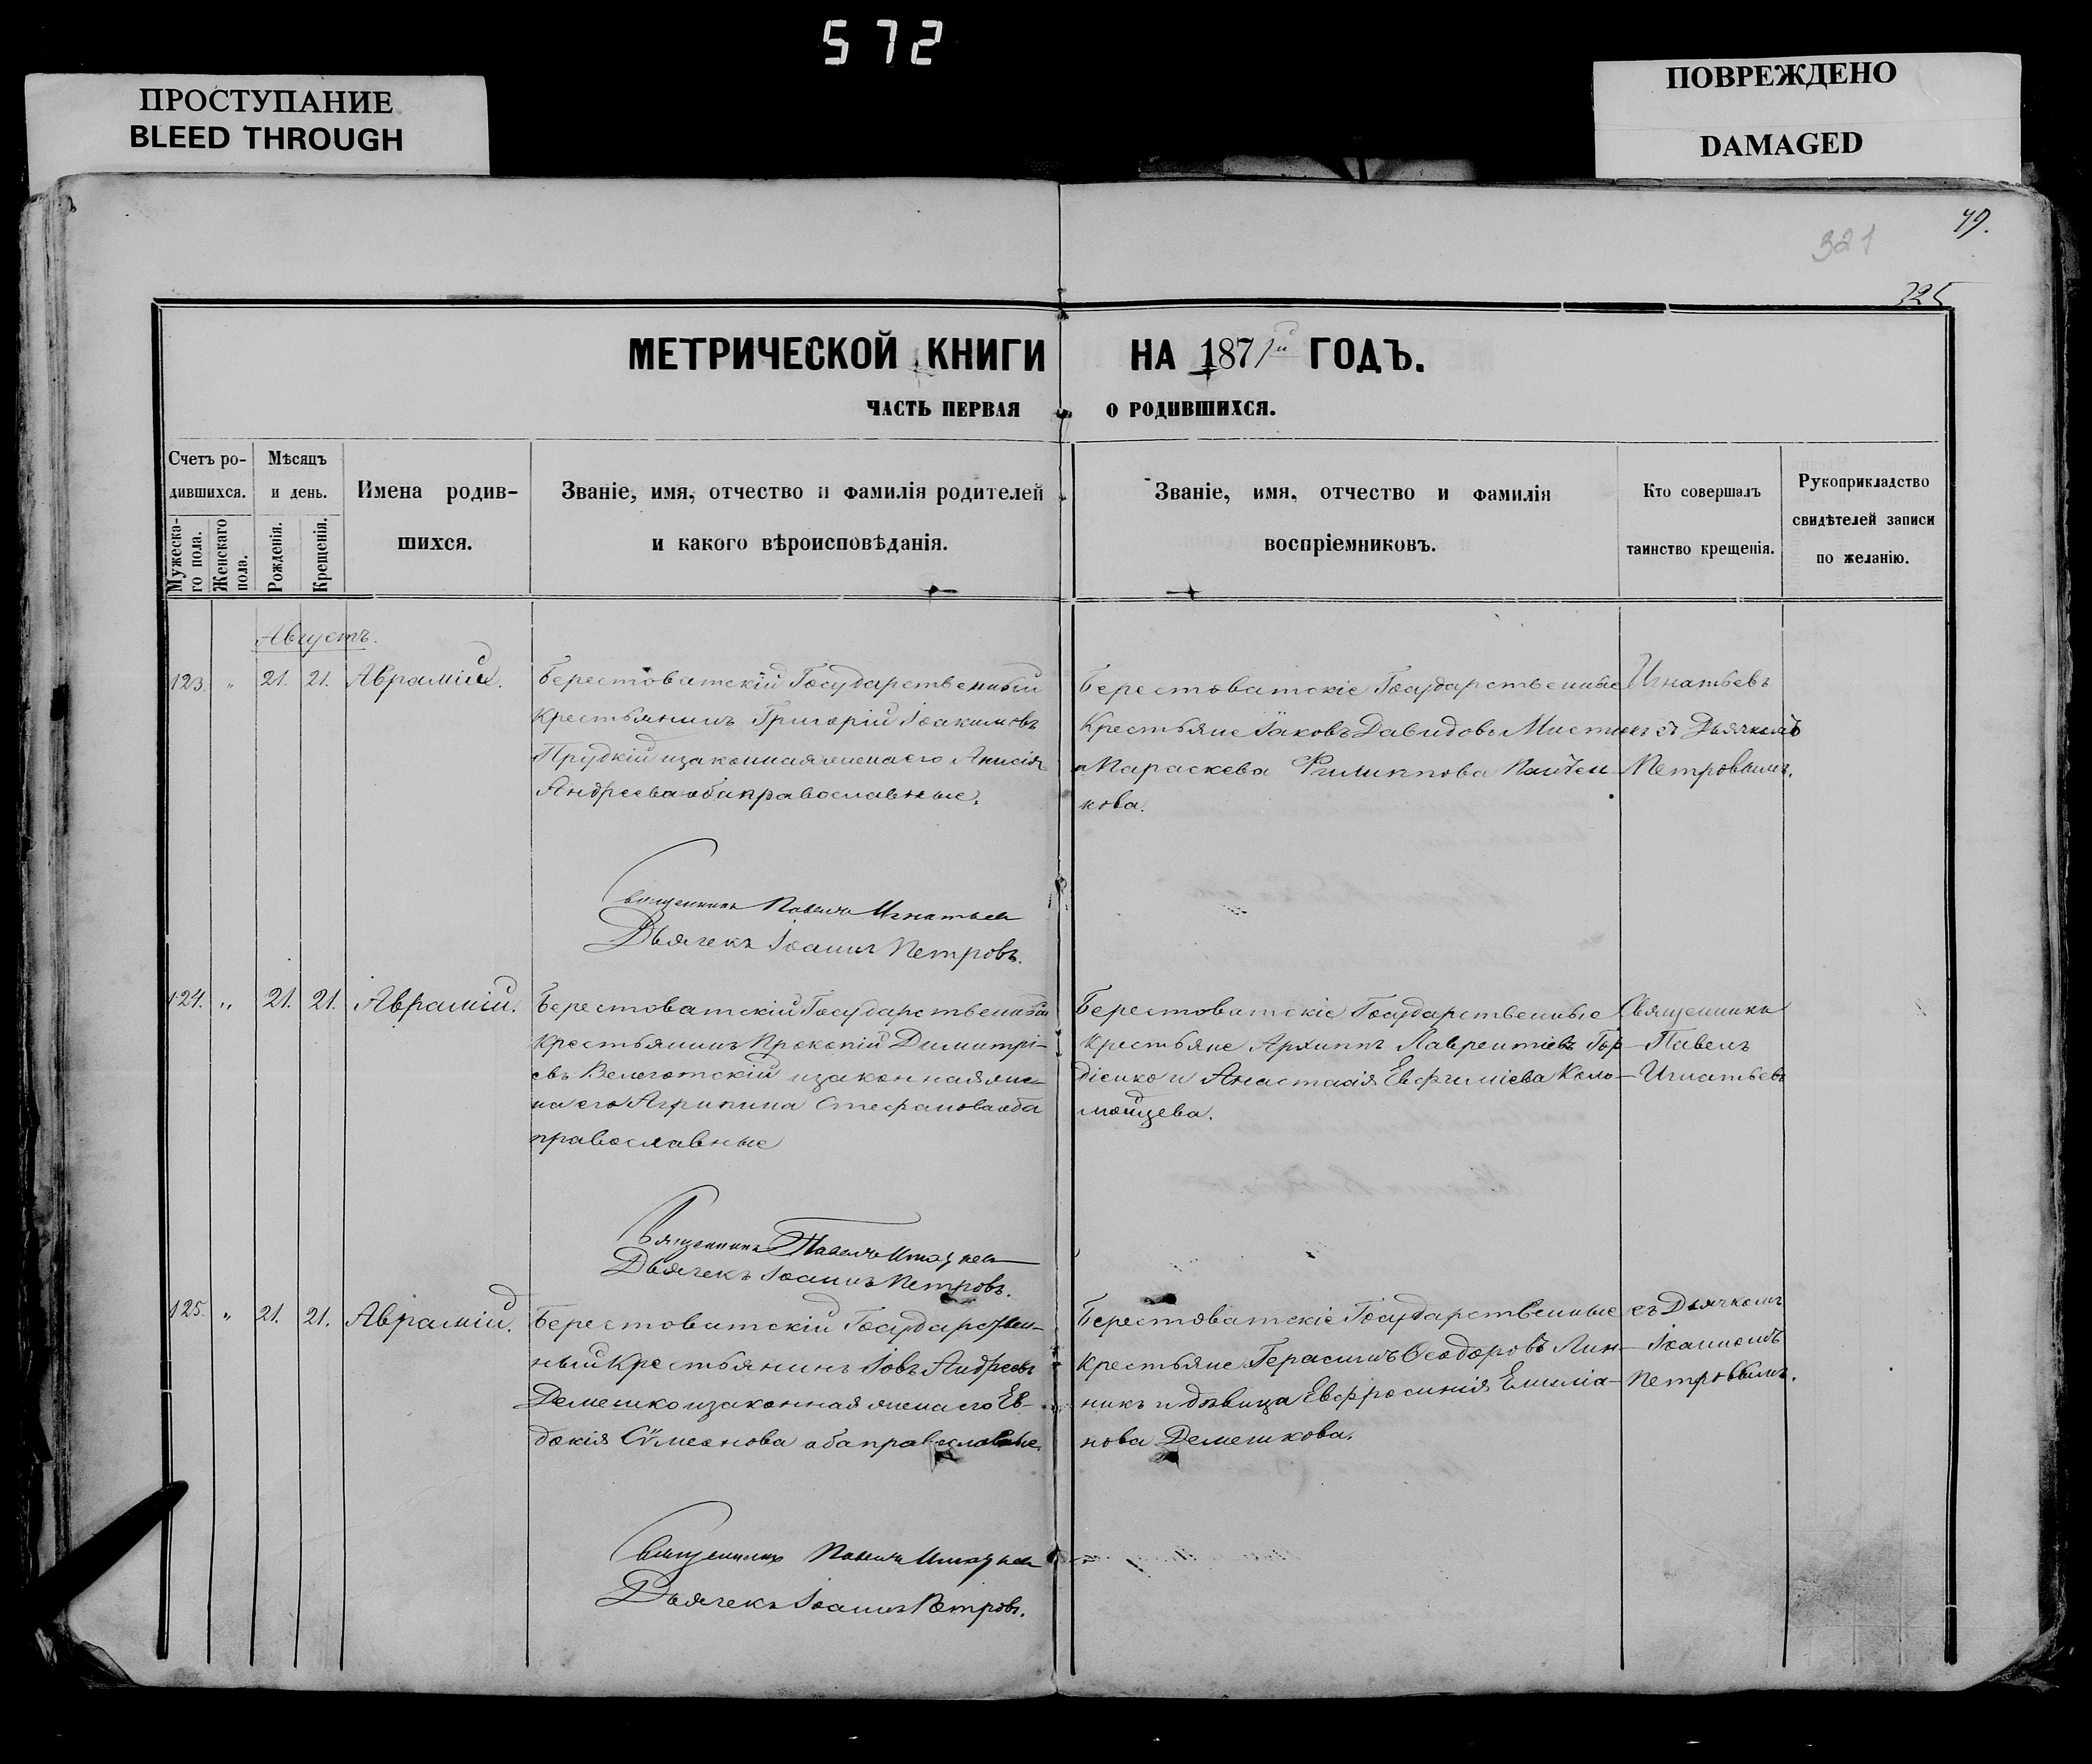 572
ПРОСТУПАНИЕ
BLEED THROUGH
ПОВРЕЖДЕНО
DAMAGED
321
325
МЕТРИЧЕСКОЙ КНИГИ НА 1871й ГОДЪ.
ЧАСТЬ ПЕРВАЯ О РОДИВШИХСЯ.
Счетъ родившихся.
Мужескаго пола.
Женскаго пола.
Мѣсяцъ и день.
Рожденія.
Крещенія.
Имена родившихся.
Званіе, имя, отчество и фамилія родителей
и какого вѣроисповѣданія.
Званіе, имя, отчество и фамилія
воспріемниковъ.
Кто совершалъ
таинство крещенія.
Рукоприкладство
свидѣтелей записи
по желанію.
Августъ.
123. " 21. 21. Аврамій.
Берестоватскій Государственный
крестьянинъ Григорій Іоакимовъ
Прудкій изаконная жена его Анисія
Андреева оба православные.
Берестоватскіе Государственные
Крестьяне Іаковъ Давидовъ
и Параскева Филиппова
кова.
Игнатьевъ
съ Дьячкомъ
Петровымъ.
Священникъ Павелъ Игнатьевъ
Дьячекъ Іоаннъ Петровъ.
124. " 21. 21. Аврамій.
Берестоватскій Государственный
крестьянинъ Прокопій Димитрі-
евъ изаконная же-
на его Агрипина Стефанова оба
православные
Берестоватскіе Государственные
крестьяне Архиппъ Лаврентіевъ Гор-
діенко и Анастасія Евфиміева Коло-
мойцева.
Священникъ
Павелъ
Игнатьевъ
Священникъ Павелъ Игнатьевъ
Дьячекъ Іоаннъ Петровъ.
125. " 21. 21. Аврамій.
Берестоватскій Государствен-
ный Крестьянинъ Іовъ Андреевъ
Демешко изаконная жена его Ев-
докія Сѵмеонова оба православные.
Берестоватскіе Государственные
крестьяне Герасимъ Ѳеодоровъ Лин-
никъ и дѣвица Евфросинія Емиліа-
нова Демешкова.
съ Дьячкомъ
Іоанномъ
Петровымъ.
Священникъ Павелъ Игнатьевъ
Дьячекъ Іоаннъ Петровъ.